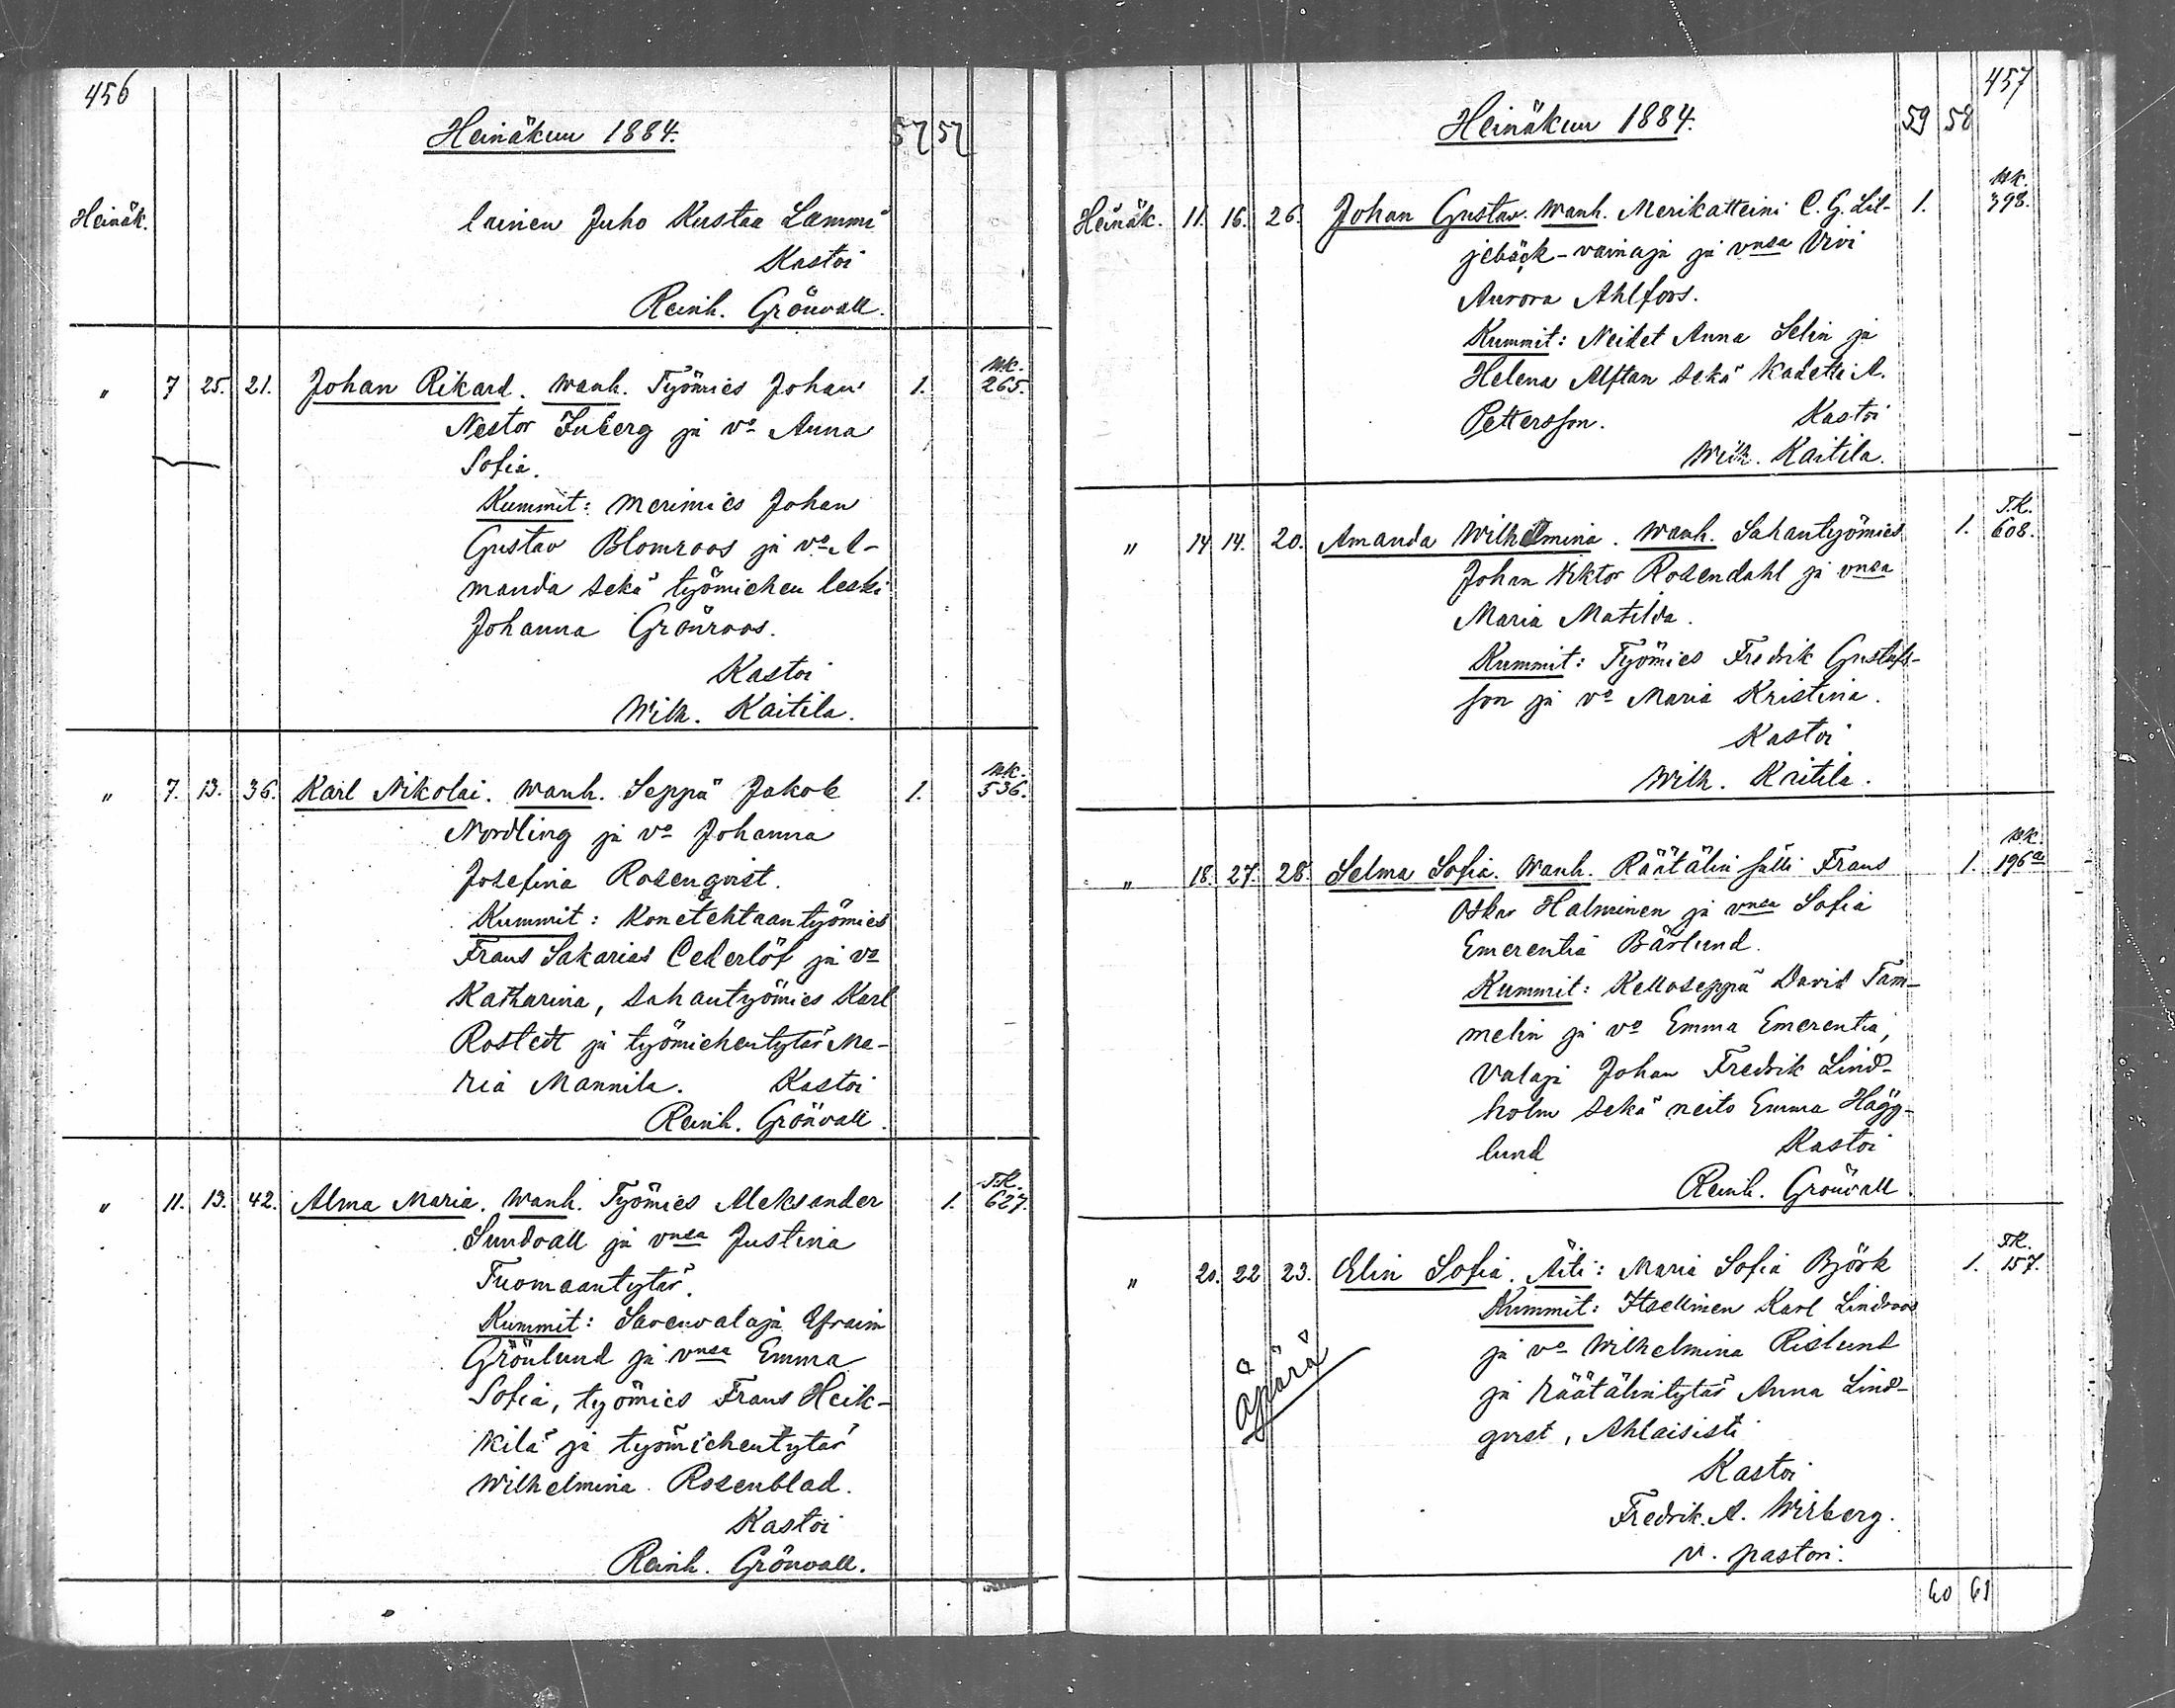 456
Heinäkuu 1884. 57 57
Heinäk. lainen Juho Kustaa Lammi
Kastoi
Reinh. Grönvall.
" 7 25. 21. Johan Rikard. Wanh. Työmies Johan 1. WK. 265.
Nestor Inberg ja vo Anna
Sofia.
Kummit: Merimies Johan
Gustav Blomroos ja vo A-
manda sekä työmiehen leski
Johanna Grönroos.
Kastoi
Wilh. Kaitila.
" 7. 13. 36. Karl Nikolai. Wanh. Seppä Jakob 1. WK. 536.
Nordling ja vo Johanna
Josefina Rosenqvist.
Kummit: Konetehtaantyömies
Frans Sakarias Cederlöf ja vo
Katharina, sahantyömies Karl
Rostedt ja työmiehentytär Ma-
ria Mannila. Kastoi
Reinh. Grönvall.
" 11. 13. 42. Alma Maria. Wanh. Työmies Aleksander 1. T.K. 627.
Sundvall ja vnsa Justina
Tuomaantytär.
Kummit: Savenvalaja Efraim
Grönlund ja vnsa Emma
Sofia, työmies Frans Heik-
kilä ja työmiehentytär
Wilhelmina Rosenblad.
Kastoi
Reinh. Grönvall.
457
Heinäkuu 1884. 59 58
Heinäk. 11. 16. 26. Johan Gustav. Wanh. Merikatteini C. G. Lil- 1. WK. 398.
jebäck-vainaja ja vnsa Vivi
Aurora Ahlfors.
Kummit: Neidet Anna Selin ja
Helena Alftan sekä Kadetti A.
Pettersson. Kastoi
Wilh. Kaitila.
" 14 14. 20. Amanda Wilhelmina. Wanh. Sahantyömies 1. T.K. 608.
Johan Viktor Rosendahl ja vnsa
Maria Matilda.
Kummit: Työmies Fredrik Gustafs-
son ja vo Maria Kristina.
Kastoi
Wilh. Kaitila.
" 18. 27. 28. Selma Sofia. Wanh. Räätälin sälli Frans 1. WK. 196a
Oskar Halminen ja vnsa Sofia
Emerentia Bärlund.
Kummit: Kelloseppä David Tam-
melin ja vo Emma Emerentia,
Valaja Johan Fredrik Lind-
holm sekä neito Emma Hägg-
lund Kastoi
Reinh. Grönvall
" 20. 22 23. Elin Sofia. Äiti: Maria Sofia Björk 1. TK. 157.
Kummit: Itsellinen Karl Lindroos
ja vo Wilhelmina Rislund
äpärä
ja räätälintytär Anna Lind-
qvist, Ahlaisisti
Kastoi
Fredrik. A. Wirberg.
v. pastori.
60 61